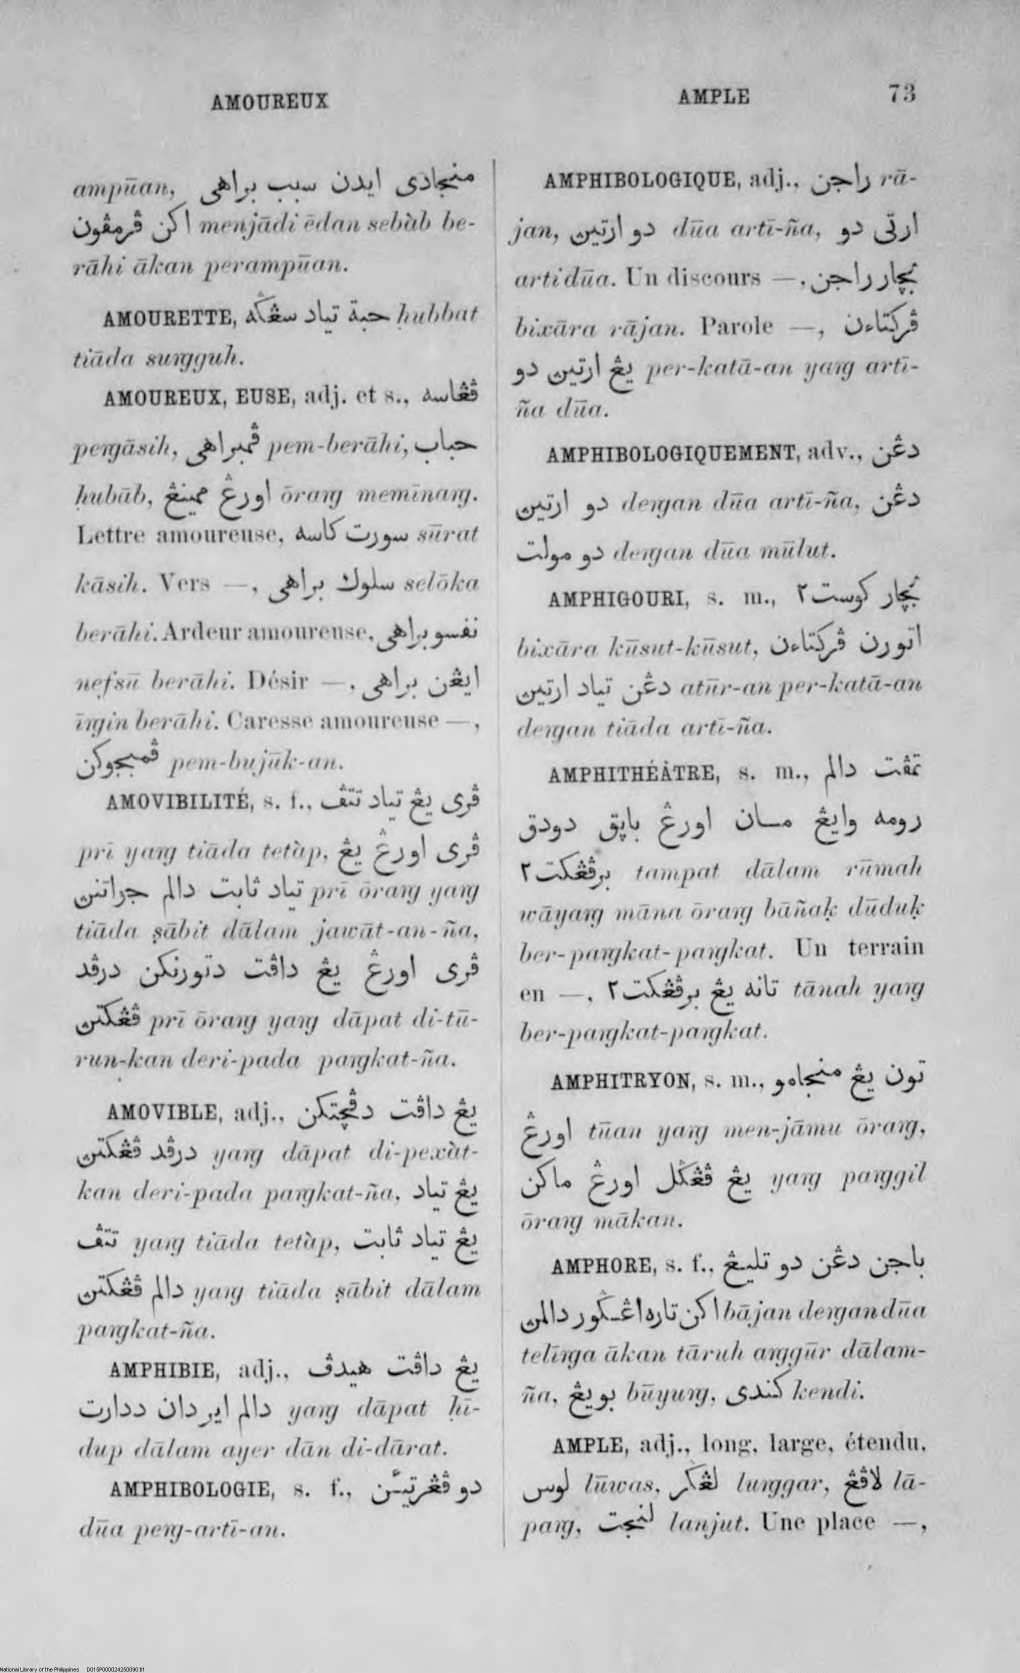 AMOUREUX
AMPLE 73
ampūan, منجادى ايدن سبب براهى
اكن ڤرمڤون menjādi ēdan sebàb be-
rāhi ākan perampūan.
AMOURETTE, حبة تياد سڠݢه ḥubbat
tiāda suṛgguh.
AMOUREUX, EUSE, adj. et s., ڤڠاسه
peṛgāsih, ڤمبراهى pem-berāhi, حباب
ḥubāb, اورڠ ممينڠ ōraṛg memīnaṛg.
Lettre amoureuse, سورت كاسه sūrat
kāsih. Vers —, سلوك براهى selōka
berāhi. Ardeur amoureuse, نفسو براهى
nefsū berāhi. Désir —, ايڠن براهى
īṛgin berāhi. Caresse amoureuse —,
ڤمبجوكن pem-bujūk-an.
AMOVIBILITÉ, s. f., ڤرى يڠ تياد تتڤ
prī yaṛg tiāda tetàp, ڤرى اورڠ يڠ
تياد ثابت دالم جواتنڽ prī ōraṛg yaṛg
tiāda ṣābit dālam jawāt-an-ña,
ڤرى اورڠ يڠ داڤت دتورنكن درڤد
ڤڠكتڽ prī ōraṛg yaṛg dāpat di-tū-
run-kan deri-pada paṛgkat-ña.
AMOVIBLE, adj., يڠ داڤت دڤچتكن
درڤد ڤڠكتڽ yaṛg dāpat di-pexàt-
kan deri-pada paṛgkat-ña, يڠ تياد
تتڤ yaṛg tiāda tetàp, يڠ تياد ثابت
دالم ڤڠكتڽ yaṛg tiāda ṣābit dālam
paṛgkat-ña.
AMPHIBIE, adj., يڠ داڤت هيدڤ
دالم اير دان ددارت yaṛg dāpat ḥī-
dup dālam ayer dān di-dārat.
AMPHIBOLOGIE, s. f., دو ڤڠرتيئن
dūa peṛg-artī-an.
AMPHIBOLOGIQUE, adj., راجن rā-
jan, دو ارتيڽ dūa artī-ña, ارتى دو
arti dūa. Un discours —, بچار راجن
bixāra rājan. Parole —, ڤركتاءن
يڠ ارتيڽ دو per-katā-an yaṛg artī-
ña dūa.
AMPHIBOLOGIQUEMENT, adv., دڠن
دو ارتيڽ deṛgan dūa artī-ña, دڠن
دو مولت deṛgan dūa mūlut.
AMPHIGOURI, s. m., بچار كوست٢
bixāra kūsut-kūsut, اتورن ڤركتاءن
دڠن تياد ارتيڽ atūr-an per-katā-an
deṛgan tiāda artī-ña.
AMPHITHÉÂTRE, s. m., تمڤت دالم
رومه وايڠ مان اورڠ باڽق دودق
برڤڠكت٢ tampat dālam rūmah
wāyaṛg māna ōraṛg bāñaḳ dūduḳ
ber-paṛgkat-paṛgkat. Un terrain
en —, تانه يڠ برڤڠكت٢ tānah yaṛg
ber-paṛgkat-paṛgkat.
AMPHITRYON, s. m., تون يڠ منجامو
اورڠ tūan yaṛg men-jāmu ōraṛg,
يڠ ڤڠݢل اورڠ ماكن yaṛg paṛggil
ōraṛg mākan.
AMPHORE, s. f., باجن دڠن دو تليڠ
اكن تاره اڠݢور دالمڽ bājan deṛgan dūa
telīṛga ākan tāruh aṛggūr dālam-
ña, بويڠ būyuṛg, كندى kendi.
AMPLE, adj., long, large, étendu,
لوس lūwas, لڠݢر luṛggar, لاڤڠ lā-
paṛg, لنجت lanjut. Une place —,
National Library of the Philippines